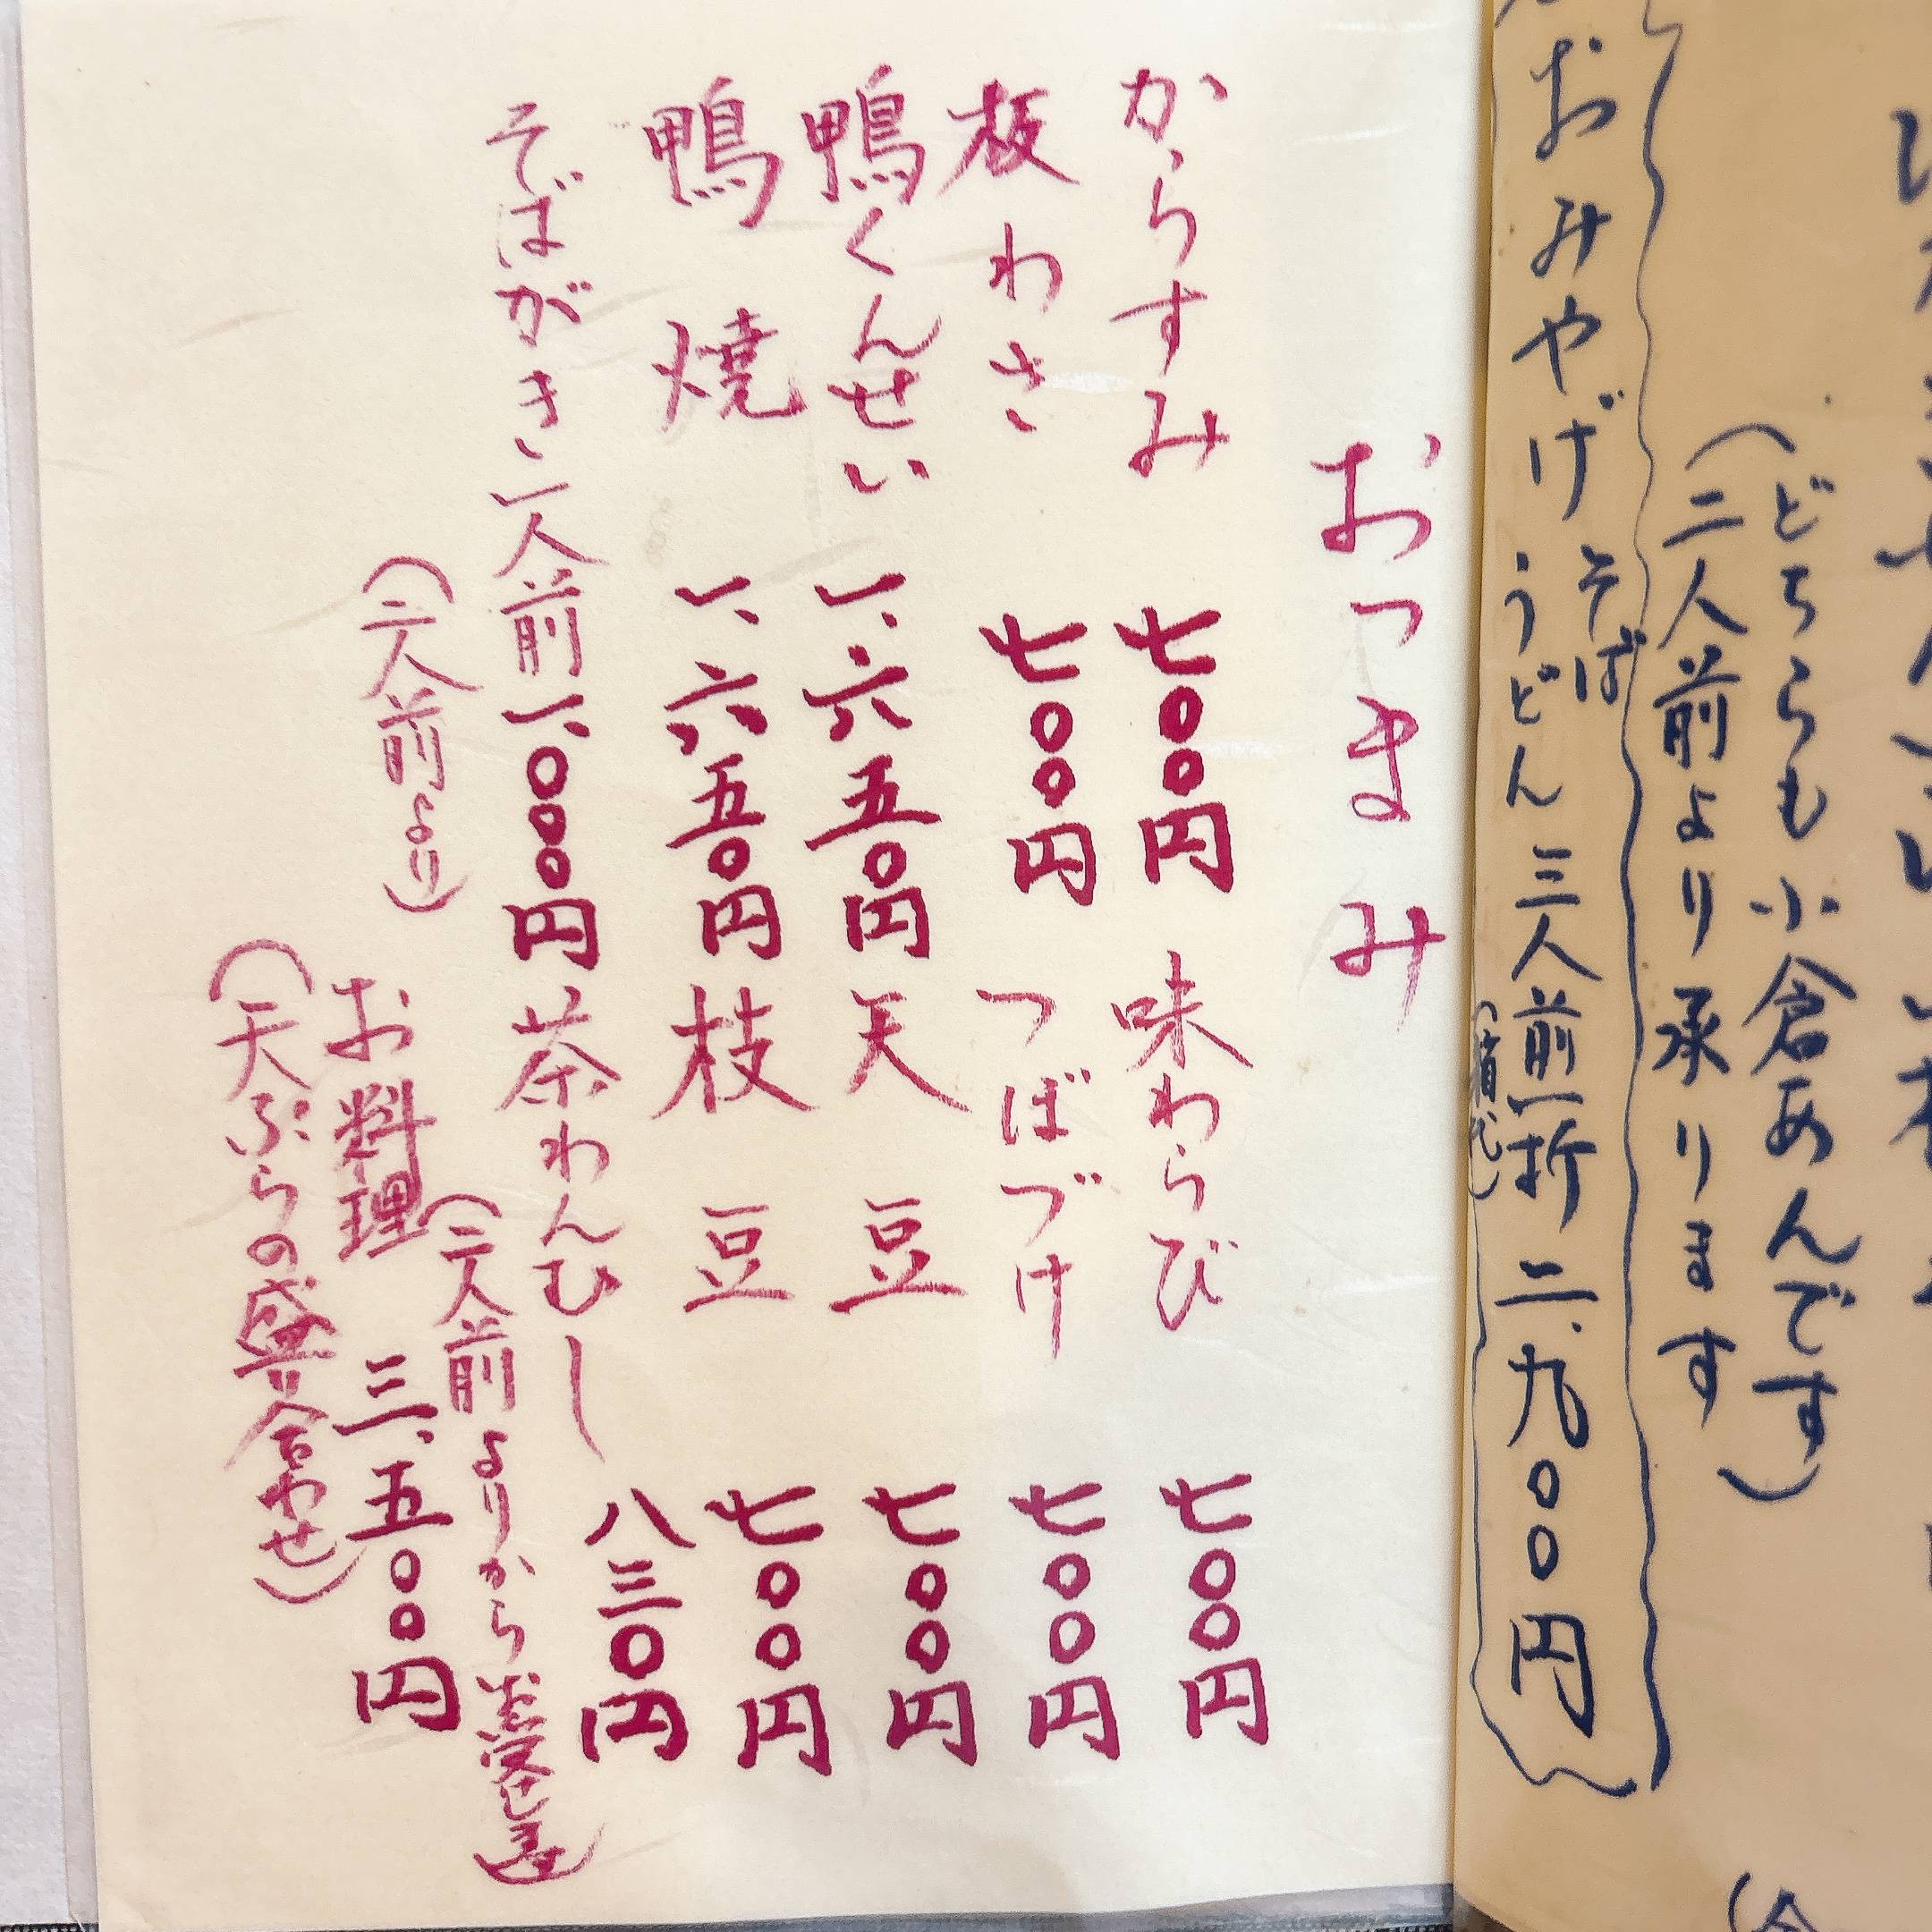 (どちらも小倉あんです)
(二人前より承ります
おみやげ そば うどん 三人前一折 二、九〇〇円
(箱代)
おつまみ
からすみ 七〇〇円 味わらび 七〇〇円
板わさ 七〇〇円 つぼづけ 七〇〇円
鴨くんせい 一、六五〇円 天豆 七〇〇円
鴨焼 一、六五〇円 枝豆 七〇〇円
そばがき 一人前 一、〇〇〇円 茶わんむし 八三〇円
(二人前より) (二人前よりから お受します)
お料理 三、五〇〇円
(天ぷらの盛り合わせ)